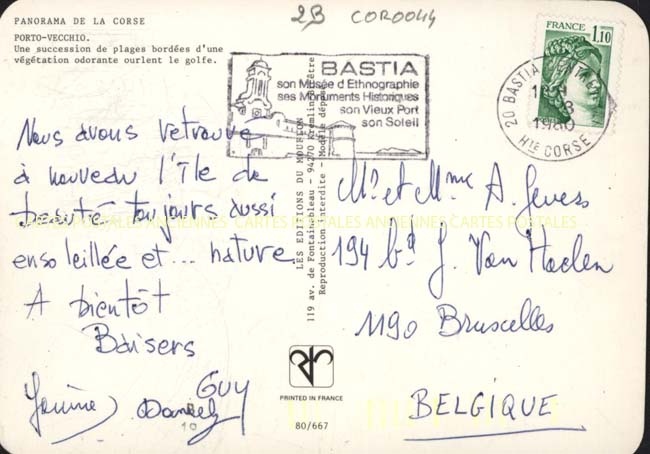 2B CORO044
PANORAMA DE LA CORSE
PORTO-VECCHIO.
Une succession de plages bordées d'une
végétation odorante ourlent le golfe.
BASTIA
son Musée d'Ethnographie
ses Monuments Historiques
son Vieux Port
son Soleil
FRANCE
1,10
20 BASTIA
1980
HTE CORSE
Nous avons retrouvé
à nouveau l'île de
beauté toujours aussi
ensoleillée et ... nature.
A bientôt
Baisers
GUY
Daniel
LES EDITIONS DU MOUFLON
119 av. de Fontainebleau - 94270 Kremlin-Bicêtre
Reproduction interdite - Modèle déposé
CARTES POSTALES ANCIENNES CARTES POSTALES
Mr et Mme A.
194 bd J. Van Haelen
1190 Bruxelles
BELGIQUE
PRINTED IN FRANCE
80/667
10